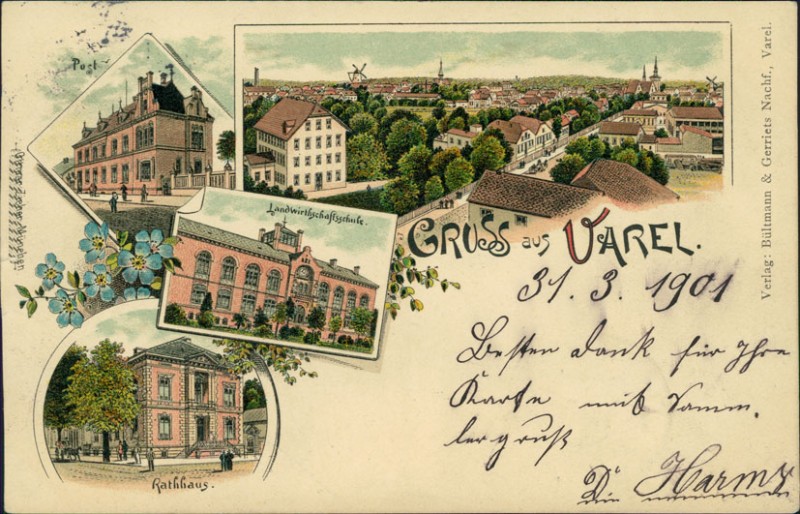 Post
Landwirthschaftsschule.
Rathhaus.
GRUSS aus VAREL.
31. 3. 1901
Besten Dank für Ihre
Karte mit Samm-
lergruß
Harms
Verlag: Bültmann & Gerriets Nachf., Varel.